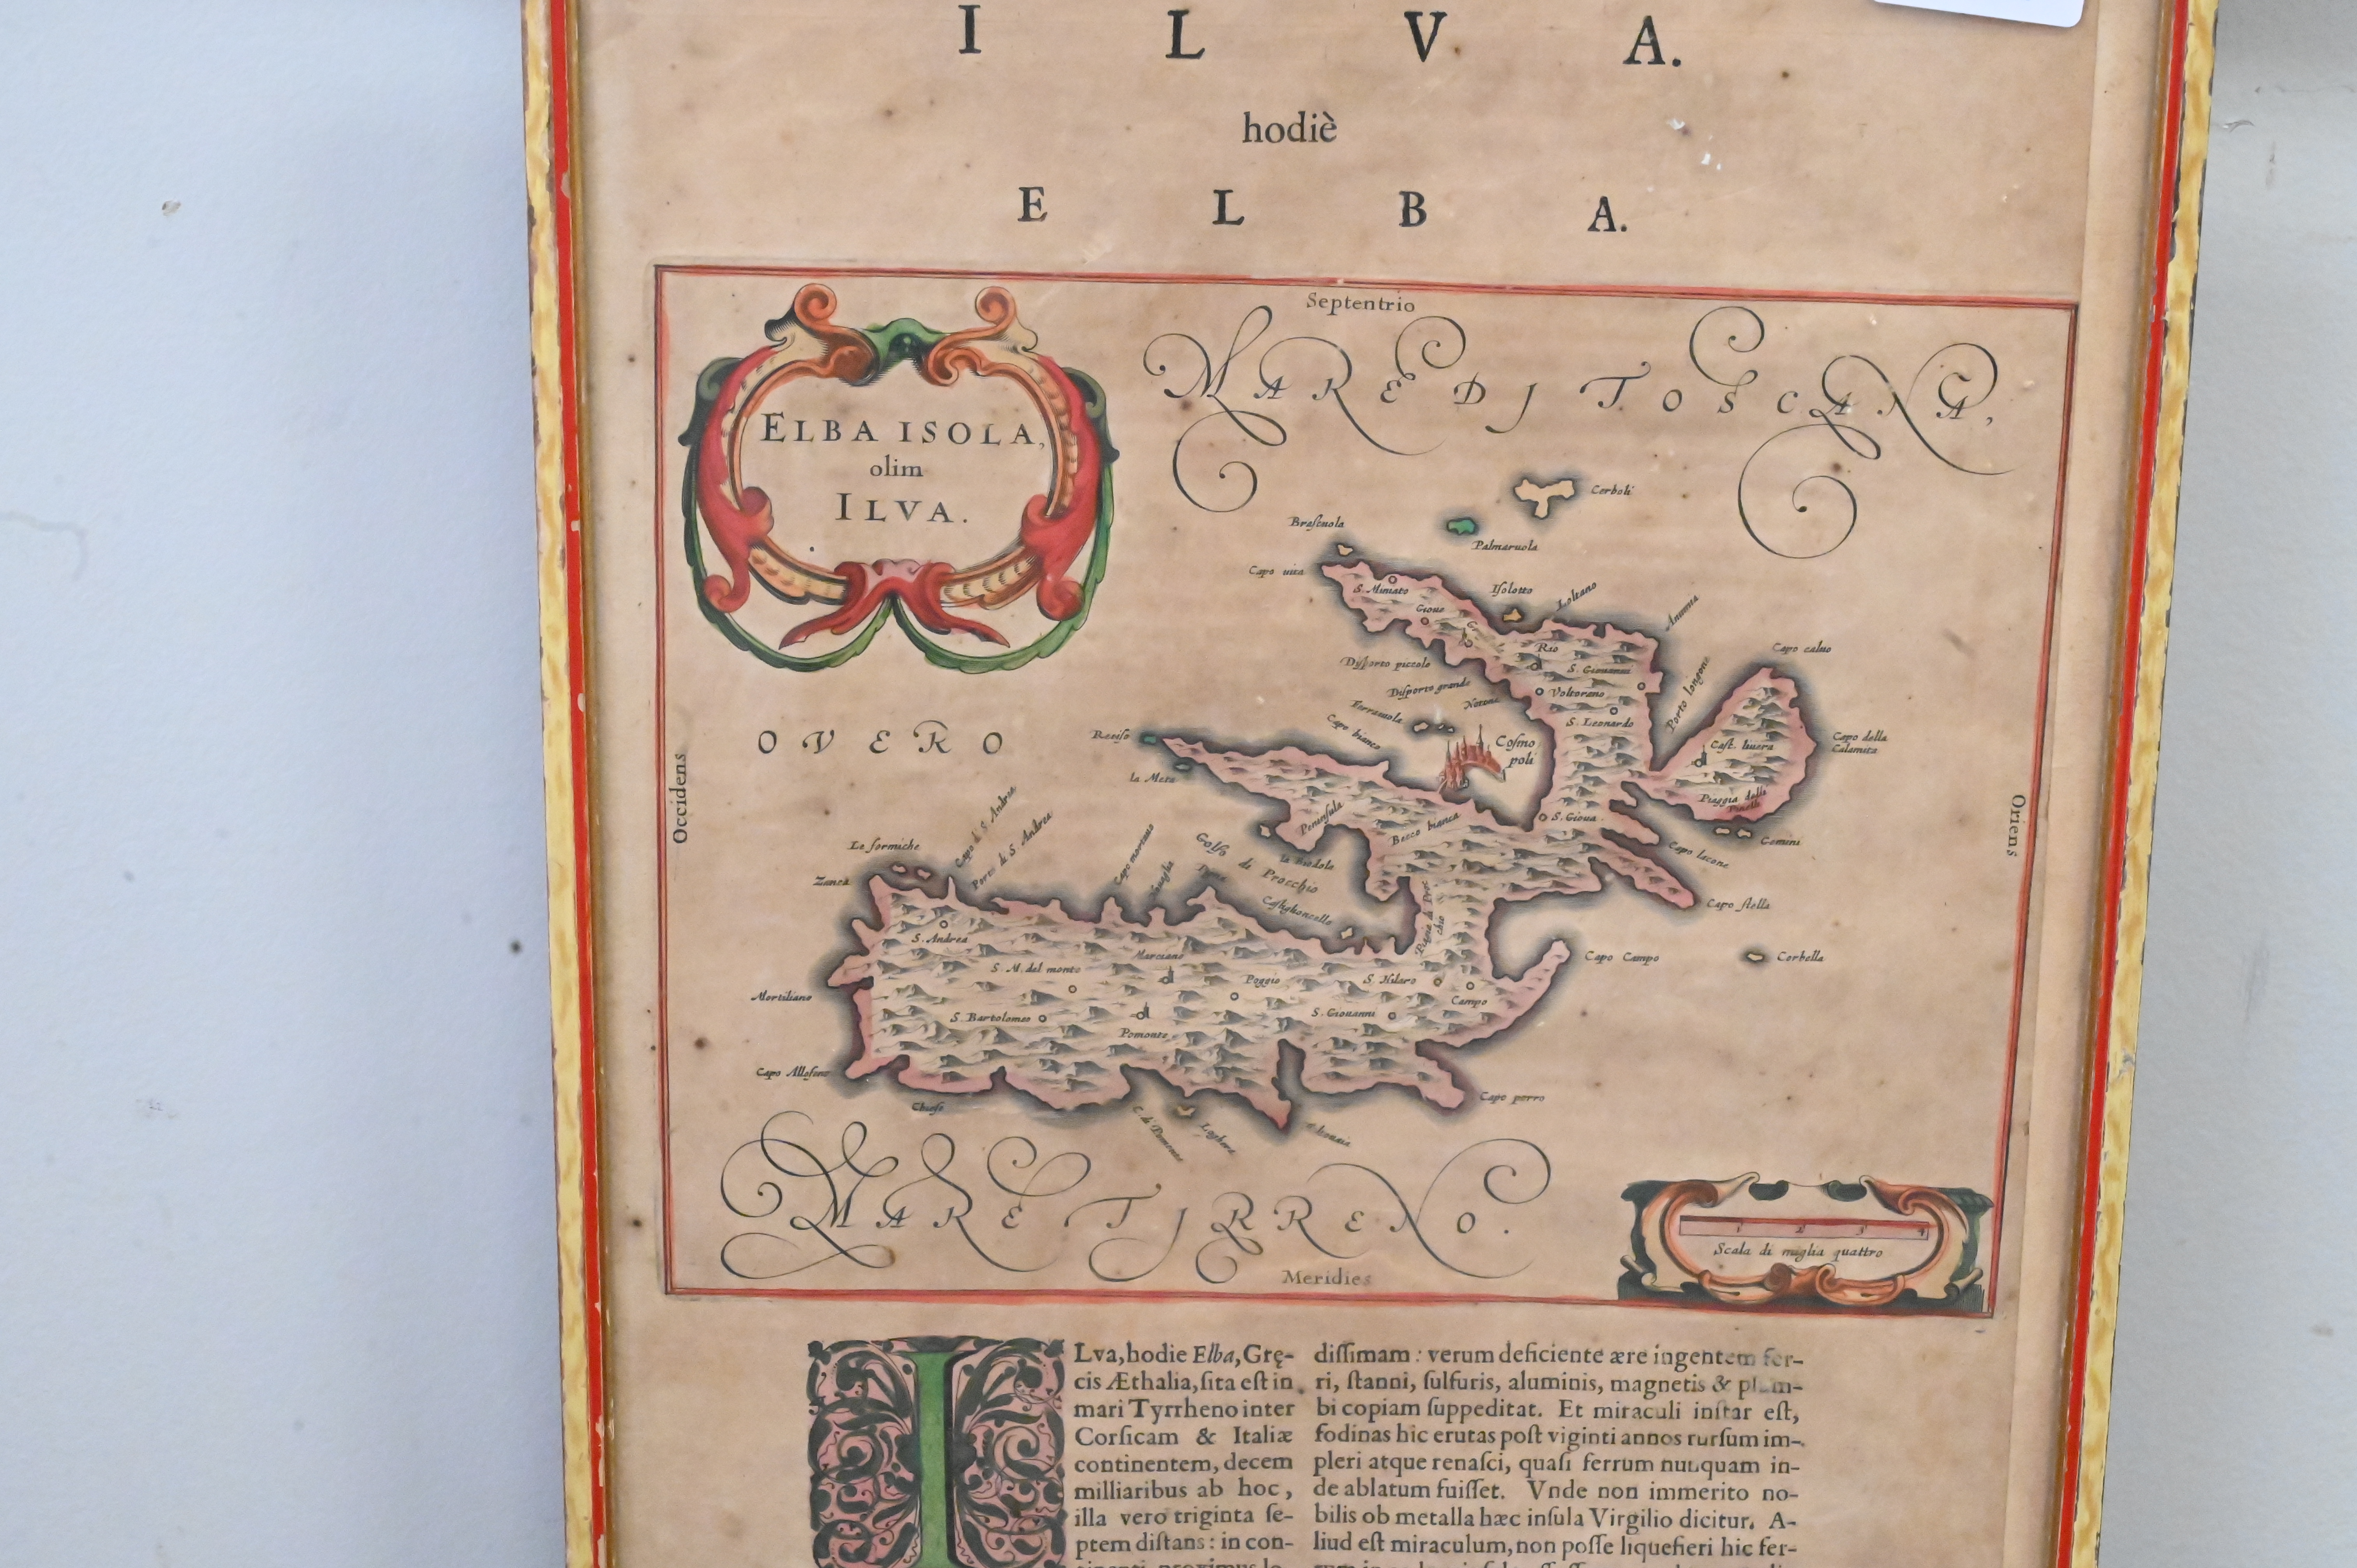 I L V A.
hodiè
E L B A.
Septentrio
MARE DJ TOSCANA,
ELBA ISOLA,
olim
ILVA.
Corboli
Palmaruola
Capo uita
S. Miniato
Gioue
Isolotto
Rio
Voltorano
S. Leonardo
Porto longone
Capo caluo
Capo della
Calamita
Disporto piccolo
Disporto grande
Capo bianco
Cosmo
poli
OVERO
Occidens
Oriens
la Meta
Peninsula
S. Gioua
Gemini
Capo stella
Le formiche
Zanca
Capo di S. Andrea
Porto di S. Andrea
Golfo
di
Procchio
S. Andrea
S. M. del monto
Marciano
Poggio
S. Hilaro
Campo
Capo Campo
Corbella
Mortiliano
S. Bartolomeo
Pomonte
S. Giouanni
Capo porro
MARE TJRRENO.
Meridies
1 2 3 4
Scala di miglia quattro
I
Lva, hodie Elba, Grę-
cis Æthalia, sita est in
mari Tyrrheno inter
Corsicam & Italiæ
continentem, decem
milliaribus ab hoc,
illa vero triginta se-
ptem distans: in con-
dissimam: verum deficiente ære ingentem fer-
ri, stanni, sulfuris, aluminis, magnetis & plum-
bi copiam suppeditat. Et miraculi instar est,
fodinas hic erutas post viginti annos rursum im-
pleri atque renasci, quasi ferrum nunquam in-
de ablatum fuisset. Vnde non immerito no-
bilis ob metalla hæc insula Virgilio dicitur. A-
liud est miraculum, non posse liquefieri hic fer-